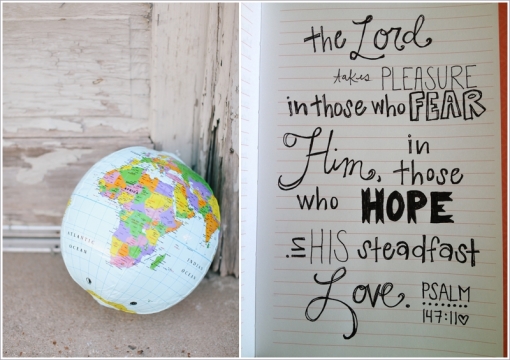 ATLANTIC
OCEAN
INDIAN
OCEAN
the Lord
takes PLEASURE
in those who FEAR
Him, in those
who HOPE
in HIS steadfast
Love. PSALM
147:11